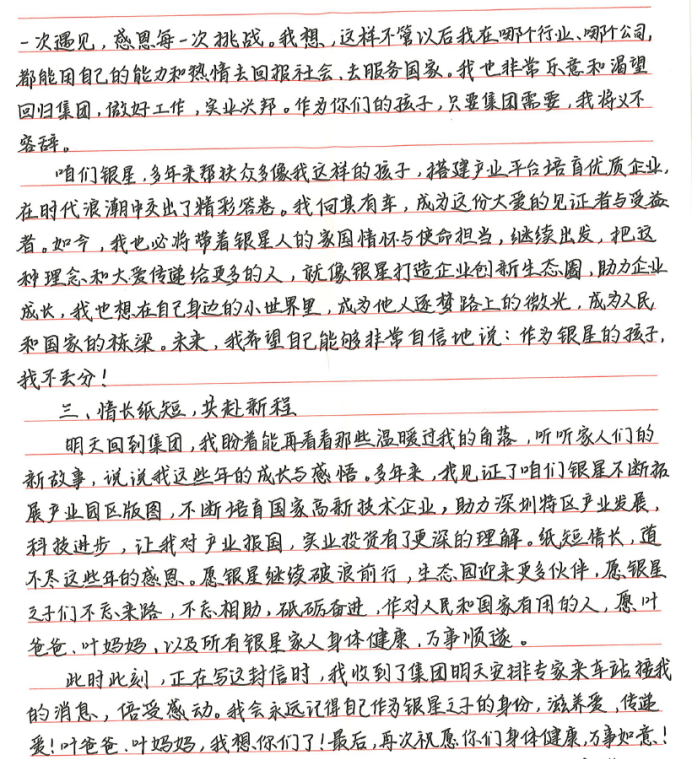 一次遇见，感恩每一次挑战。我想，这样不管以后我在哪个行业、哪个公司，
都能用自己的能力和热情去回报社会、去服务国家。我也非常乐意和渴望
回归集团，做好工作，实业兴邦。作为你们的孩子，只要集团需要，我将义不
容辞。
咱们银星，多年来帮扶众多像我这样的孩子，搭建产业平台培育优质企业，
在时代浪潮中交出了精彩答卷。我何其有幸，成为这份大爱的见证者与受益
者。如今，我也必将带着银星人的家国情怀与使命担当，继续出发，把这
种理念和大爱传递给更多的人，就像银星打造企业创新生态圈，助力企业
成长，我也想在自己身边的小世界里，成为他人逐梦路上的微光，成为人民
和国家的栋梁。未来，我希望自己能够非常自信地说：作为银星的孩子，
我不丢分！
三、情长纸短，共赴新程
明天回到集团，我盼着能再看看那些温暖过我的角落，听听家人们的
新故事，说说我这些年的成长与感悟。多年来，我见证了咱们银星不断拓
展产业园区版图，不断培育国家高新技术企业，助力深圳特区产业发展，
科技进步，让我对产业报国，实业投资有了更深的理解。纸短情长，道
不尽这些年的感恩。愿银星继续破浪前行，生态圈迎来更多伙伴，愿银星
之子们不忘来路，不忘相助，砥砺奋进，作对人民和国家有用的人，愿叶
爸爸、叶妈妈，以及所有银星家人身体健康，万事顺遂。
此时此刻，正在写这封信时，我收到了集团明天安排专家来车站接我
的消息，倍受感动。我会永远记得自己作为银星之子的身份，滋养爱，传递
爱！叶爸爸、叶妈妈，我想你们了！最后，再次祝愿你们身体健康，万事如意！